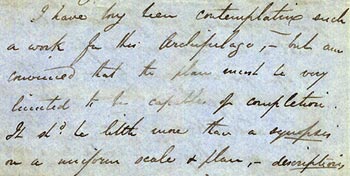 I have long been contemplating such
a work for this Archipelago, — but am
convinced that the plan must be very
limited to be capable of completion.
It shd. be little more than a synopsis
on a uniform scale & plan, — descriptions